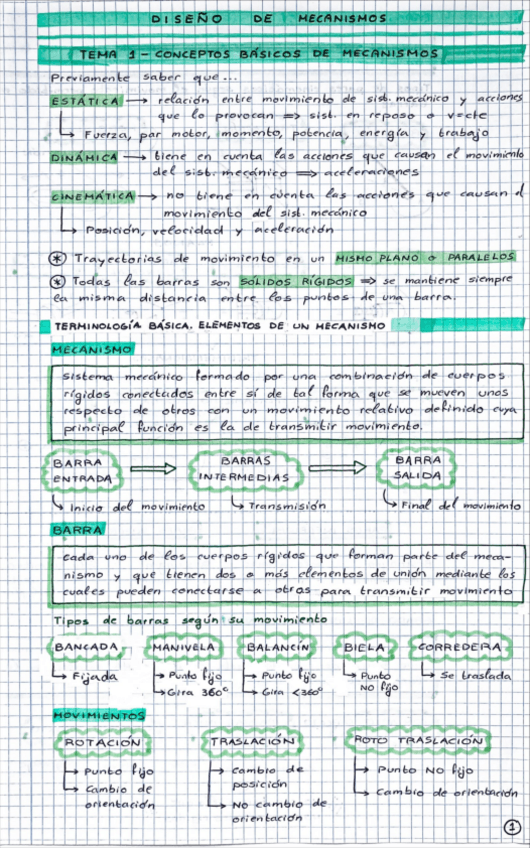 DISEÑO DE MECANISMOS
TEMA 1 - CONCEPTOS BÁSICOS DE MECANISMOS
Previamente saber que...
ESTÁTICA → relación entre movimiento de sist. mecánico y acciones
que lo provocan ⇒ sist. en reposo o v=cte
↳ Fuerza, par motor, momento, potencia, energía y trabajo
DINÁMICA → tiene en cuenta las acciones que causan el movimiento
del sist. mecánico ⇒ aceleraciones
CINEMÁTICA → no tiene en cuenta las acciones que causan el
movimiento del sist. mecánico
↳ Posición, velocidad y aceleración
* Trayectorias de movimiento en un MISMO PLANO o PARALELOS
* Todas las barras son SÓLIDOS RÍGIDOS ⇒ se mantiene siempre
la misma distancia entre los puntos de una barra.
TERMINOLOGÍA BÁSICA. ELEMENTOS DE UN MECANISMO
MECANISMO
Sistema mecánico formado por una combinación de cuerpos
rígidos conectados entre sí de tal forma que se mueven unos
respecto de otros con un movimiento relativo definido cuya
principal función es la de transmitir movimiento.
BARRA ENTRADA ⇒ BARRAS INTERMEDIAS ⇒ BARRA SALIDA
↳ Inicio del movimiento ↳ Transmisión ↳ Final del movimiento
BARRA
Cada uno de los cuerpos rígidos que forman parte del meca-
nismo y que tienen dos o más elementos de unión mediante los
cuales pueden conectarse a otros para transmitir movimiento
Tipos de barras según su movimiento
BANCADA MANIVELA BALANCÍN BIELA CORREDERA
↳ Fijada ↳ Punto fijo ↳ Punto fijo ↳ Punto NO fijo ↳ Se traslada
↳ Gira 360º ↳ Gira <360º
MOVIMIENTOS
ROTACIÓN TRASLACIÓN ROTO TRASLACIÓN
↳ Punto fijo ↳ Cambio de posición ↳ Punto NO fijo
↳ Cambio de orientación ↳ No cambio de orientación ↳ Cambio de orientación
1